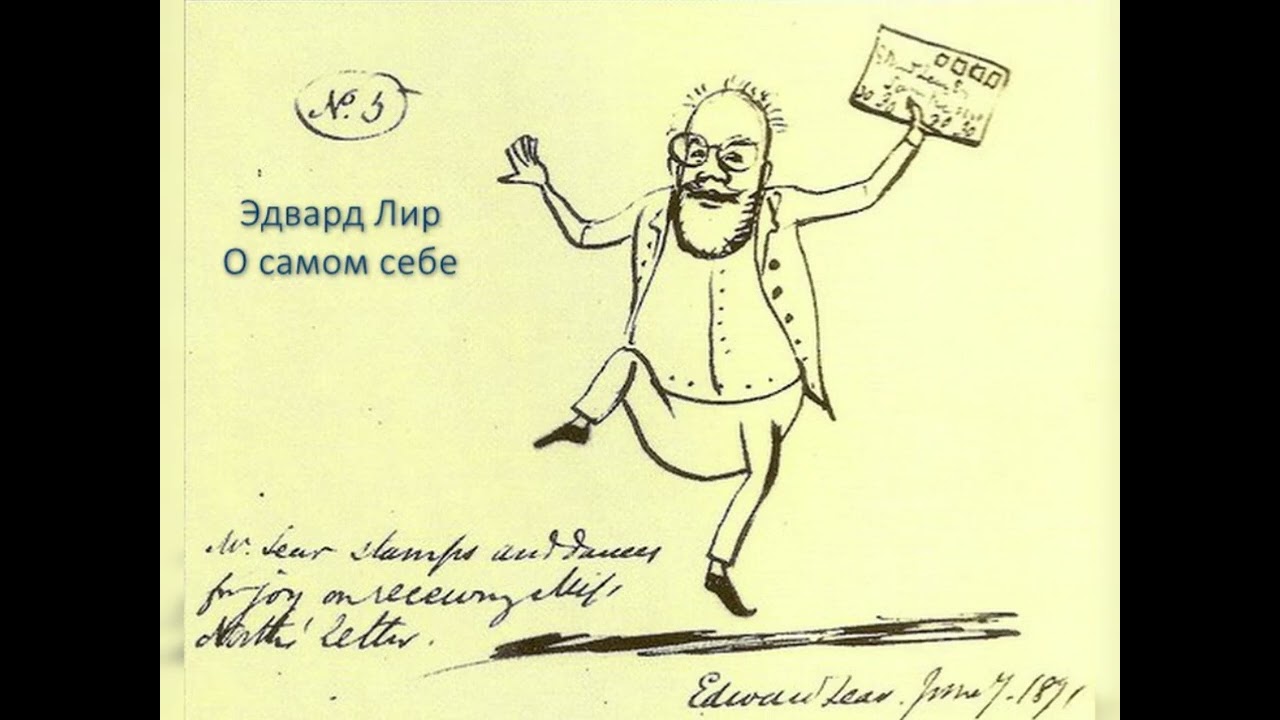 No. 5
Эдвард Лир
О самом себе
Mr. Lear stamps and dances
for joy on receiving Miss
North's letter.
Edward Lear. June 7. 1871